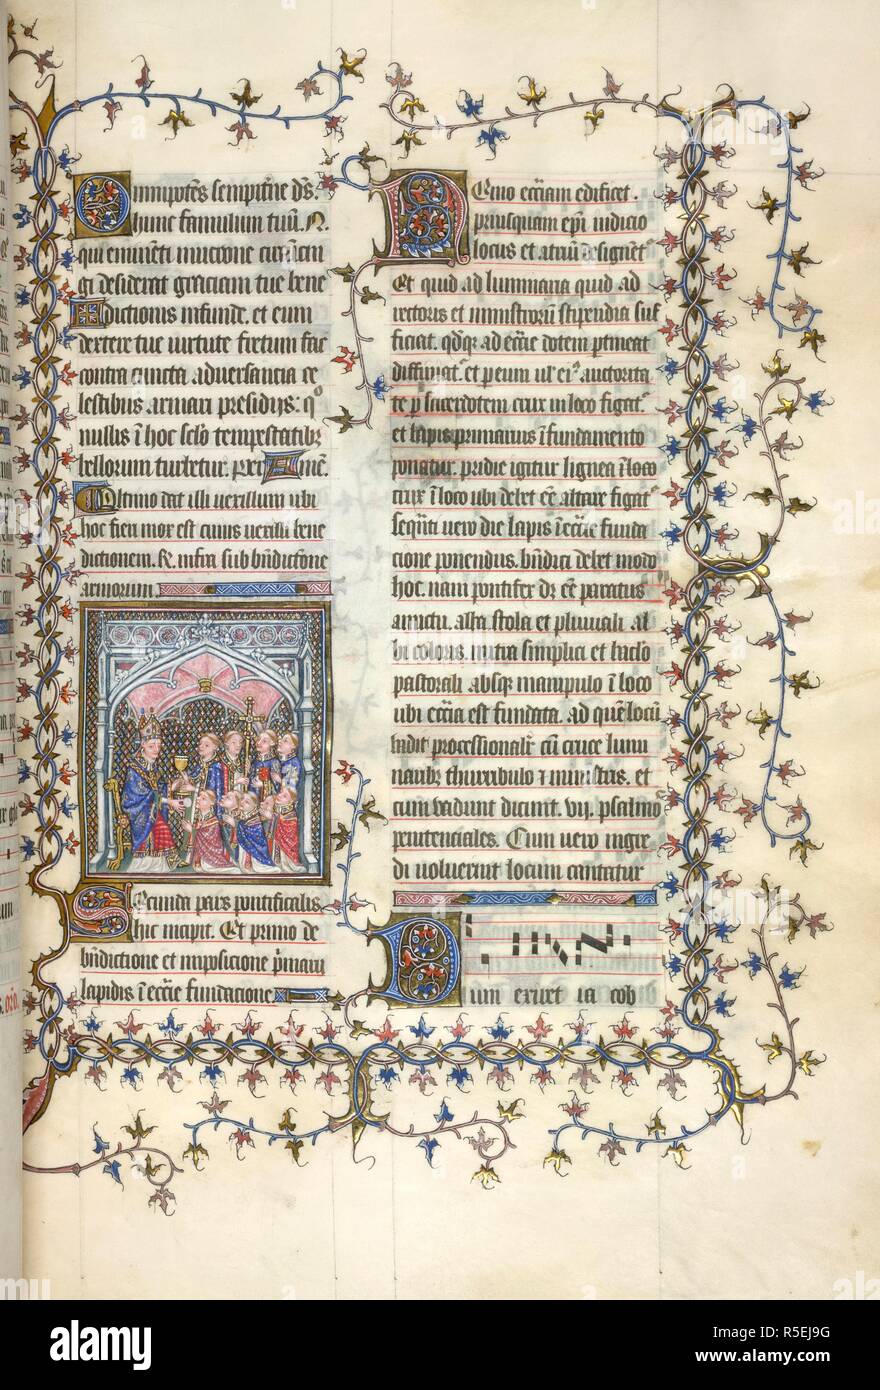 Omnipotes sempitne ds.
hunc famulum tuu. N.
qui eminenti mucrone circumcin
gi desiderat graciam tue bene
dictionis infunde. et eum
dextere tue virtute fretum fac
contra cuncta adversancia ce
lestibus armari presidijs: qo
nullis i hoc seclo tempestatibz
bellorum turbetur. p xpi Amen.
Ultimo dat illi vexillum ubi
hoc fieri mos est cuius vexilli bene
dictionem. R. infra sub bndictione
armorum.
Secunda pars pontificalis
hic incipit. Et primo de
bndictione et imposicione pmarii
lapidis i eccie fundacione
Nemo ecciam edificet.
priusquam epi iudicio
locus et atriu designetr
Et quid ad luminaria quid ad
rectoris et ministroru stipendia suf
ficiat. qdqz ad eccie dotem ptineat
diffiniatr et p eum ul eis auctorita
te p sacerdotem crux in loco figatr
et lapis primarius i fundamento
ponatur. pridie igitur lignea i loco
crux i loco ubi debet ee altare figatr
sequeti vero die lapis i eccie funda
cione ponendus. bndici debet modo
hoc. nam pontifex dz ee paratus
amictu. alba stola et pluviali al
bi coloris. mitra simplici et baclo
pastorali absqz manipulo i loco
ubi eccia est fundata. ad que locu
vadit processionalr cu cruce lumi
naribz thuribulo z ministris. et
cum vadunt dicunt. vij. psalmos
penitenciales. Cum vero ingre
di voluerint locum cantatur
Dum exiret ia cob
alamy
Image ID: R5EJ9G
www.alamy.com